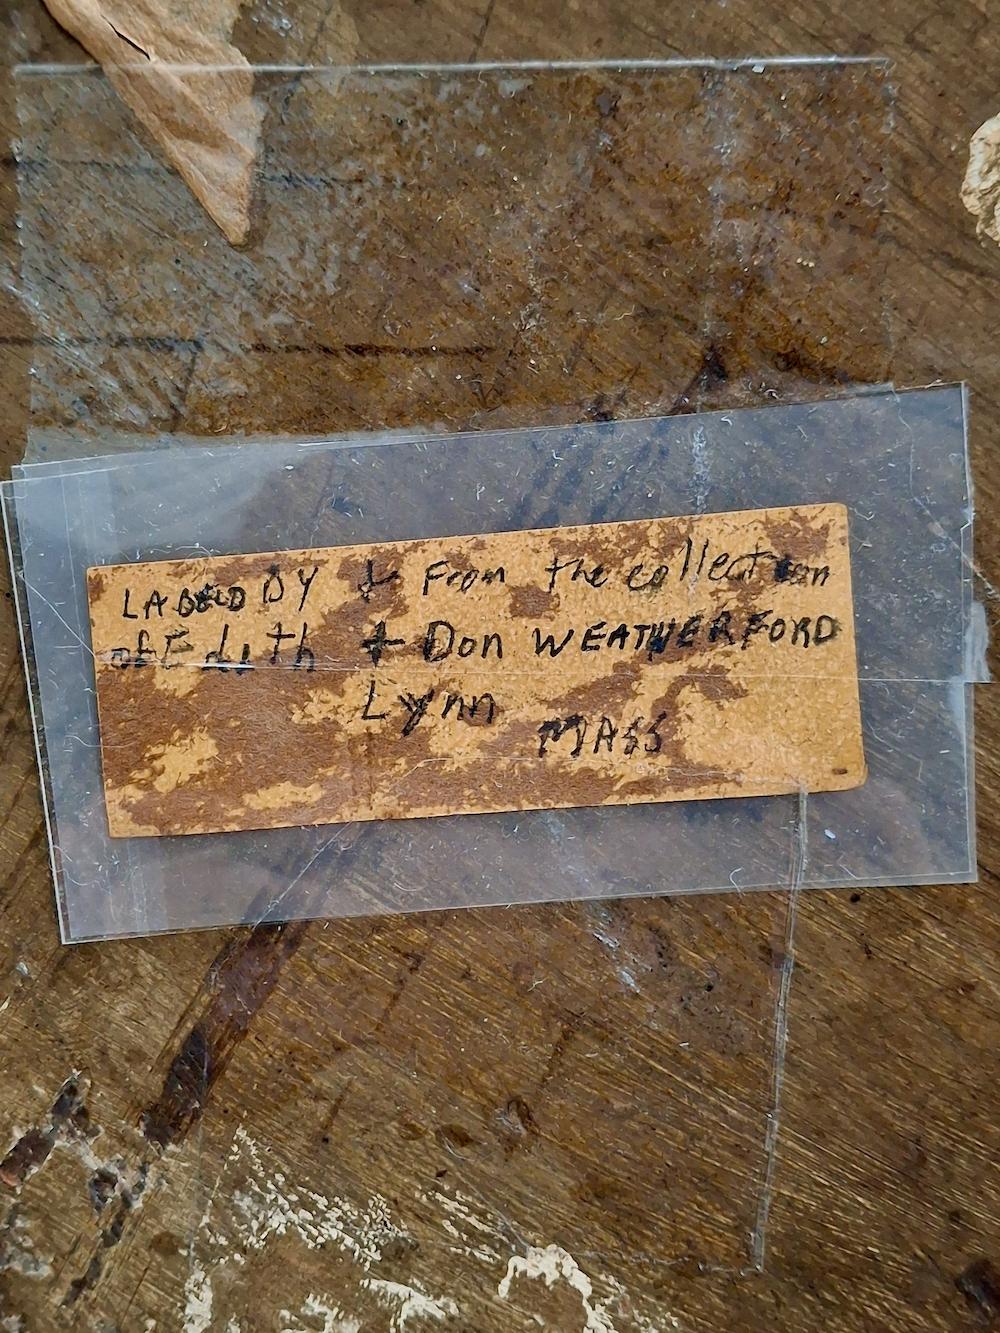 LABELD BY + From the collection
of Edith + Don WEATHERFORD
Lynn
MASS